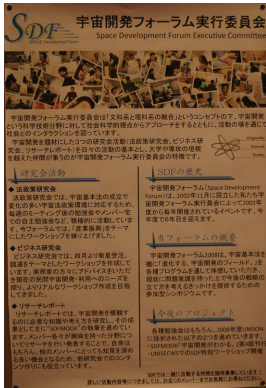 SDF
SPACE Development Forum
宇宙開発フォーラム実行委員会
Space Development Forum Executive Committee
宇宙開発フォーラム実行委員会は「文科系と理科系の融合」というコンセプトの下、宇宙開発
という科学技術分野に対して社会科学的視点からアプローチをするとともに、活動の場を通して
社会とのインタラクションを図っています。
宇宙開発を題材にした3つの研究会活動(法政策研究会、ビジネス研究
会、リサーチレポート)を日々の活動の基本とし、大学や専攻の垣根
を越えた仲間が集うのが宇宙開発フォーラム実行委員会の特徴です。
研究会活動
◆ 法政策研究会
法政策研究会では、宇宙基本法の成立で
変化の多い宇宙法政策環境に対応するため、
毎週のミーティング後の勉強会やメンバー宅
での自主勉強会など、積極的に活動していま
す。今フォーラムでは、「産業振興」をテーマ
にしたワークショップを繰り上げました。
◆ ビジネス研究会
ビジネス研究会では、四月より衛星受注、
調達をテーマとしたワークショップを作成して
います。実務家の方々にアドバイスをいただ
き現在の民間宇宙開発・利用へのニーズを
探り、よりリアルなワークショップ作成を目指
してきました。
◆ リサーチレポート
リサーチレポートでは、宇宙開発を概観す
るのに必要な知識や考え方を研究し、その成
果として主に「SDFMOOK」の執筆を進めてい
ます。メンバー各々が興味を持った分野につ
いてリサーチを行い発表することで、自身は
もちろん、他のメンバーにとっても知見を深め
る良い機会となるため、他の研究会でのコンテ
ンツ作りにも役立っています。
SDFの歴史
宇宙開発フォーラム(Space Development
Forum)は、2002年11月に設立した私たち宇
宙開発フォーラム実行委員会によって2003年
度から毎年開催されているイベントです。今
年度で本年目を迎えます。
当フォーラムの概要
宇宙開発フォーラム2008は、宇宙基本法を
機に「進化する、宇宙開発のフィールド。」を
各種プログラムを通して体感していただき、
現状の問題意識を持った上で今後の戦略の
立て方を考えるきっかけを提供するための
参加型シンポジウムです。
今後のプロジェクト
各種勉強会はもちろん、2008年度UNISON
に採択された以下の2つを進めていきます。
・SDFMOOK「宇宙開発がわかる」、第4版刊行
・UNISECWSでのSDF特別ワークショップ開催
SDFでは一緒に活動する仲間を随時募集しています!